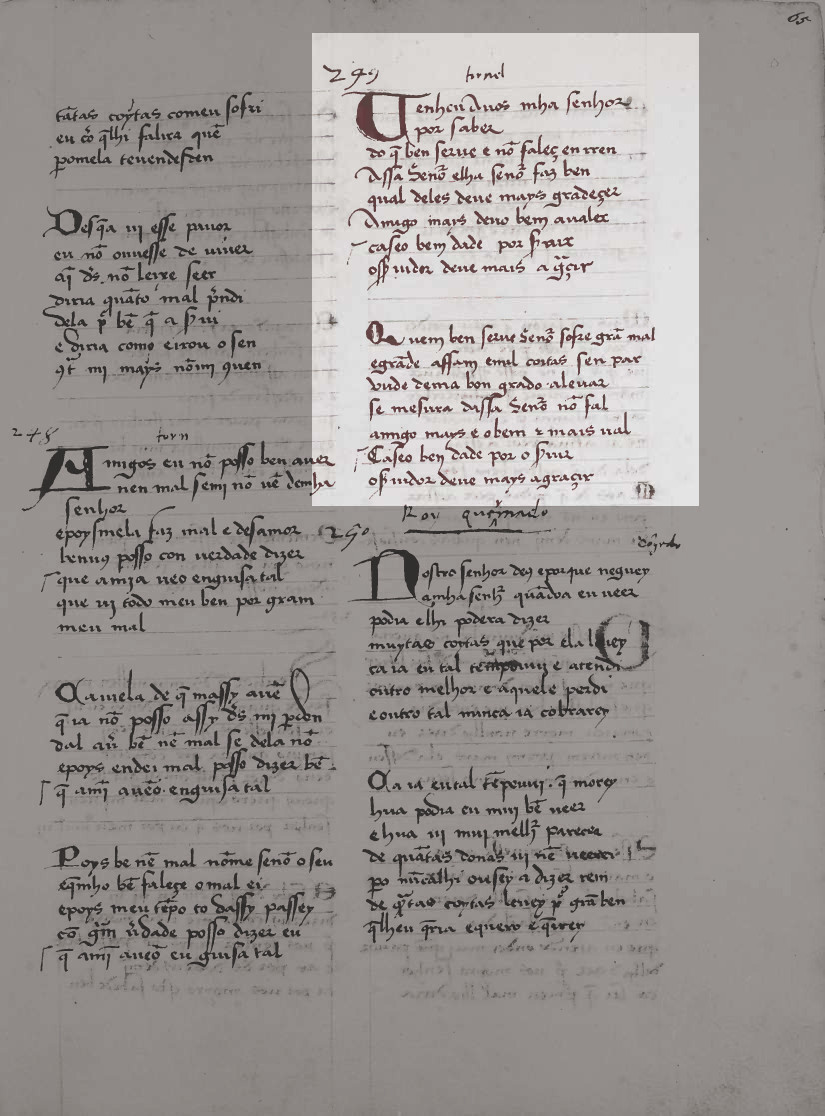 65
tãtas coytas comeu sofri
eu cõ q̃lhi falira quẽ
ꝑomela tevendesden
Desq̃a vi esse pavor
eu nõ ouvesse de viver
aĩ d's nõ leixe seer
diria quãto mal p̃ndi
dela p̃ bẽ q̃ a s'vi
e diria como eixou o sen
mi mays nõmi quen
248 torn
Amigos eu nõ posso ben aver
nen mal semi nõ vẽ demha
senhor
epoysmela faz mal e desamor
benvꝯ posso con verdade dizer
que amĩa veo enguisa tal
que vi todo meu ben por gram
meu mal
Ca mela de q̃ massy avẽ
q̃ ia nõ posso assy d's mi ꝑdon
dal av' bẽ nẽ mal se dela nõ
epoys endei mal posso dizer bẽ
q̃ amĩ aveo enguisa tal
Poys be nẽ mal nõme senõ o seu
eq̃mho bẽ faleçe o mal ei
epoys meu tẽpo to dassy passey
cõ g̃m v'dade posso dizer eu
q̃ amĩ aveo en guisa tal
249 tornel
Tenheu Avos mha senhor
por saber
do q̃ ben serve e nõ faleç en rren
Assa Senõ' elha senõ' faz ben
qual deles deve mays gradeçer
Amigo mays devo bem avaler
caseo bem dade por s'vir
os'vidor deve mais a g̃çir
Quem ben serve Senõ' sofre grã mal
egrãde affam emil coitas sen par
vnde demia bon grado alevar
se mesura dassa Senõ' nõ fal
amigo mays e obem e mais val
Caseo ben dade por o s'vir
os'vidor deve mays agraçir
250 Roy queimado
Nostro senhor deꝯ eporque neguey
amha senh' quãdoa eu veer
podia elhi podera dizer
muytas coitas que por ela levey
ca ia eu tal tẽpouvi e atendi
outro melhor e aquele perdi
e outro tal nunca ia cobrarey
Ca ia eu tal tẽpouvi q̃ morey
hua podia eu mui bẽ veer
e hua vi mui melh' parecer
de quãtas donas vi nẽ veerei
ꝑo nũcalhi ousey a dizer rem
de q̃tas coytas levey p' grã ben
q̃lheu q̃ria equero e q̃rrey